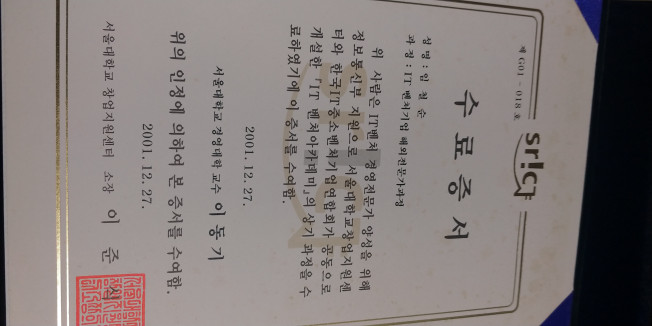 제 G01 - 018 호
srICT
수 료 증 서
성 명 : 임 철 순
과 정 : IT 벤처기업 해외전문가과정
위 사람은 IT벤처 경영전문가 양성을 위해
정보통신부 지원으로 서울대학교창업지원센
터와 한국IT중소벤처기업연합회가 공동으로
개설한 「IT 벤처아카데미」의 상기 과정을 수
료하였기에 이 증서를 수여함.
2001. 12. 27.
서울대학교 경영대학 교수 이 동 기
위의 인정에 의하여 본 증서를 수여함.
2001. 12. 27.
서울대학교 창업지원센터 소장 이 준 식